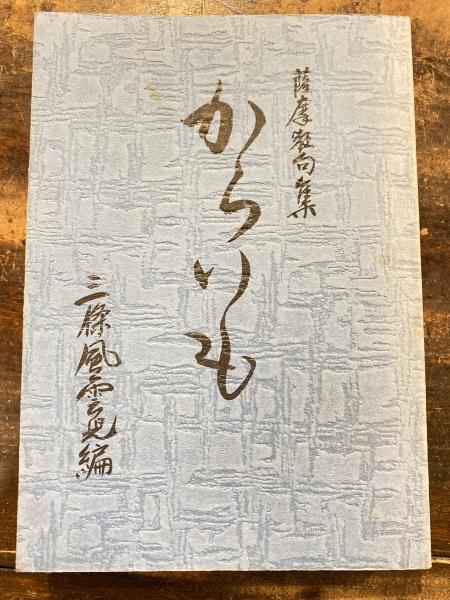 薩摩狂句集
からいも
三條風雲児編